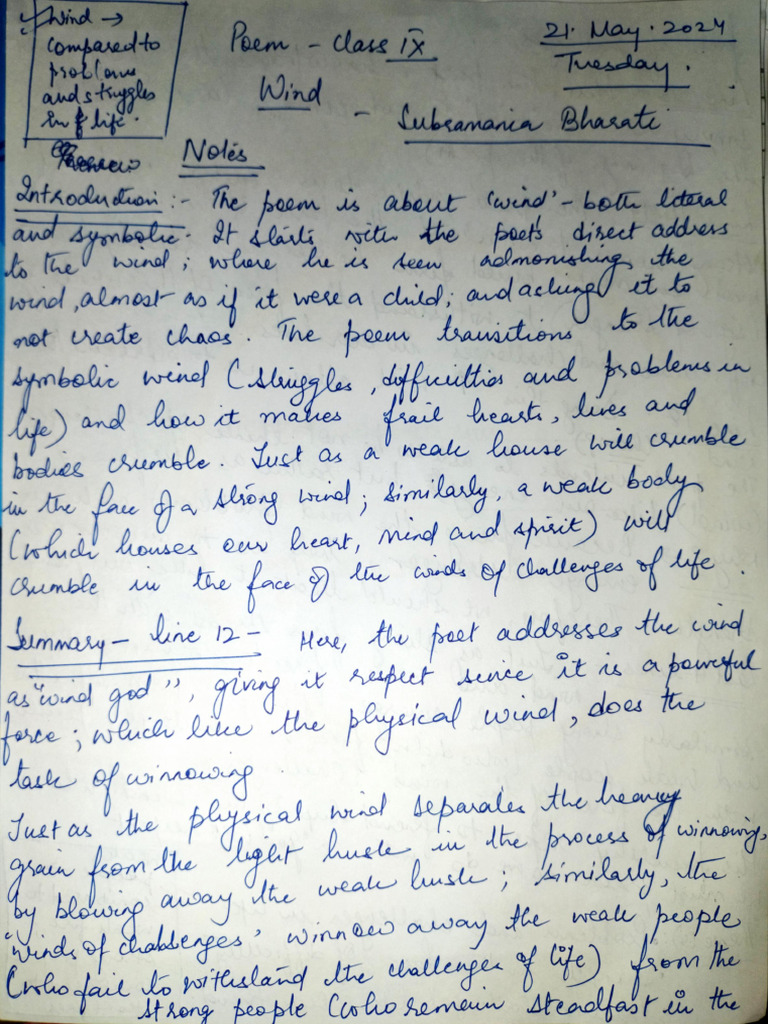 Wind →
compared to
problems
and struggles
in life.
Poem - Class IX
21. May. 2024
Tuesday.
Wind
- Subramania Bharati
Notes
Introduction :- The poem is about 'wind' - both literal
and symbolic. It starts with the poet's direct address
to the wind; where he is seen admonishing the
wind, almost as if it were a child; and asking it to
not create chaos. The poem transitions to the
symbolic wind (struggles, difficulties and problems in
life) and how it makes frail hearts, lives and
bodies crumble. Just as a weak house will crumble
in the face of a strong wind; similarly, a weak body
(which houses our heart, mind and spirit) will
crumble in the face of the winds of challenges of life.
Summary - line 12 - Here, the poet addresses the wind
as "wind god", giving it respect since it is a powerful
force; which like the physical wind, does the
task of winnowing.
Just as the physical wind separates the heavy
grain from the light husk in the process of winnowing,
by blowing away the weak husk; similarly, the
'winds of challenges' winnow away the weak people
(who fail to withstand the challenges of life) from the
strong people (who remain steadfast in the